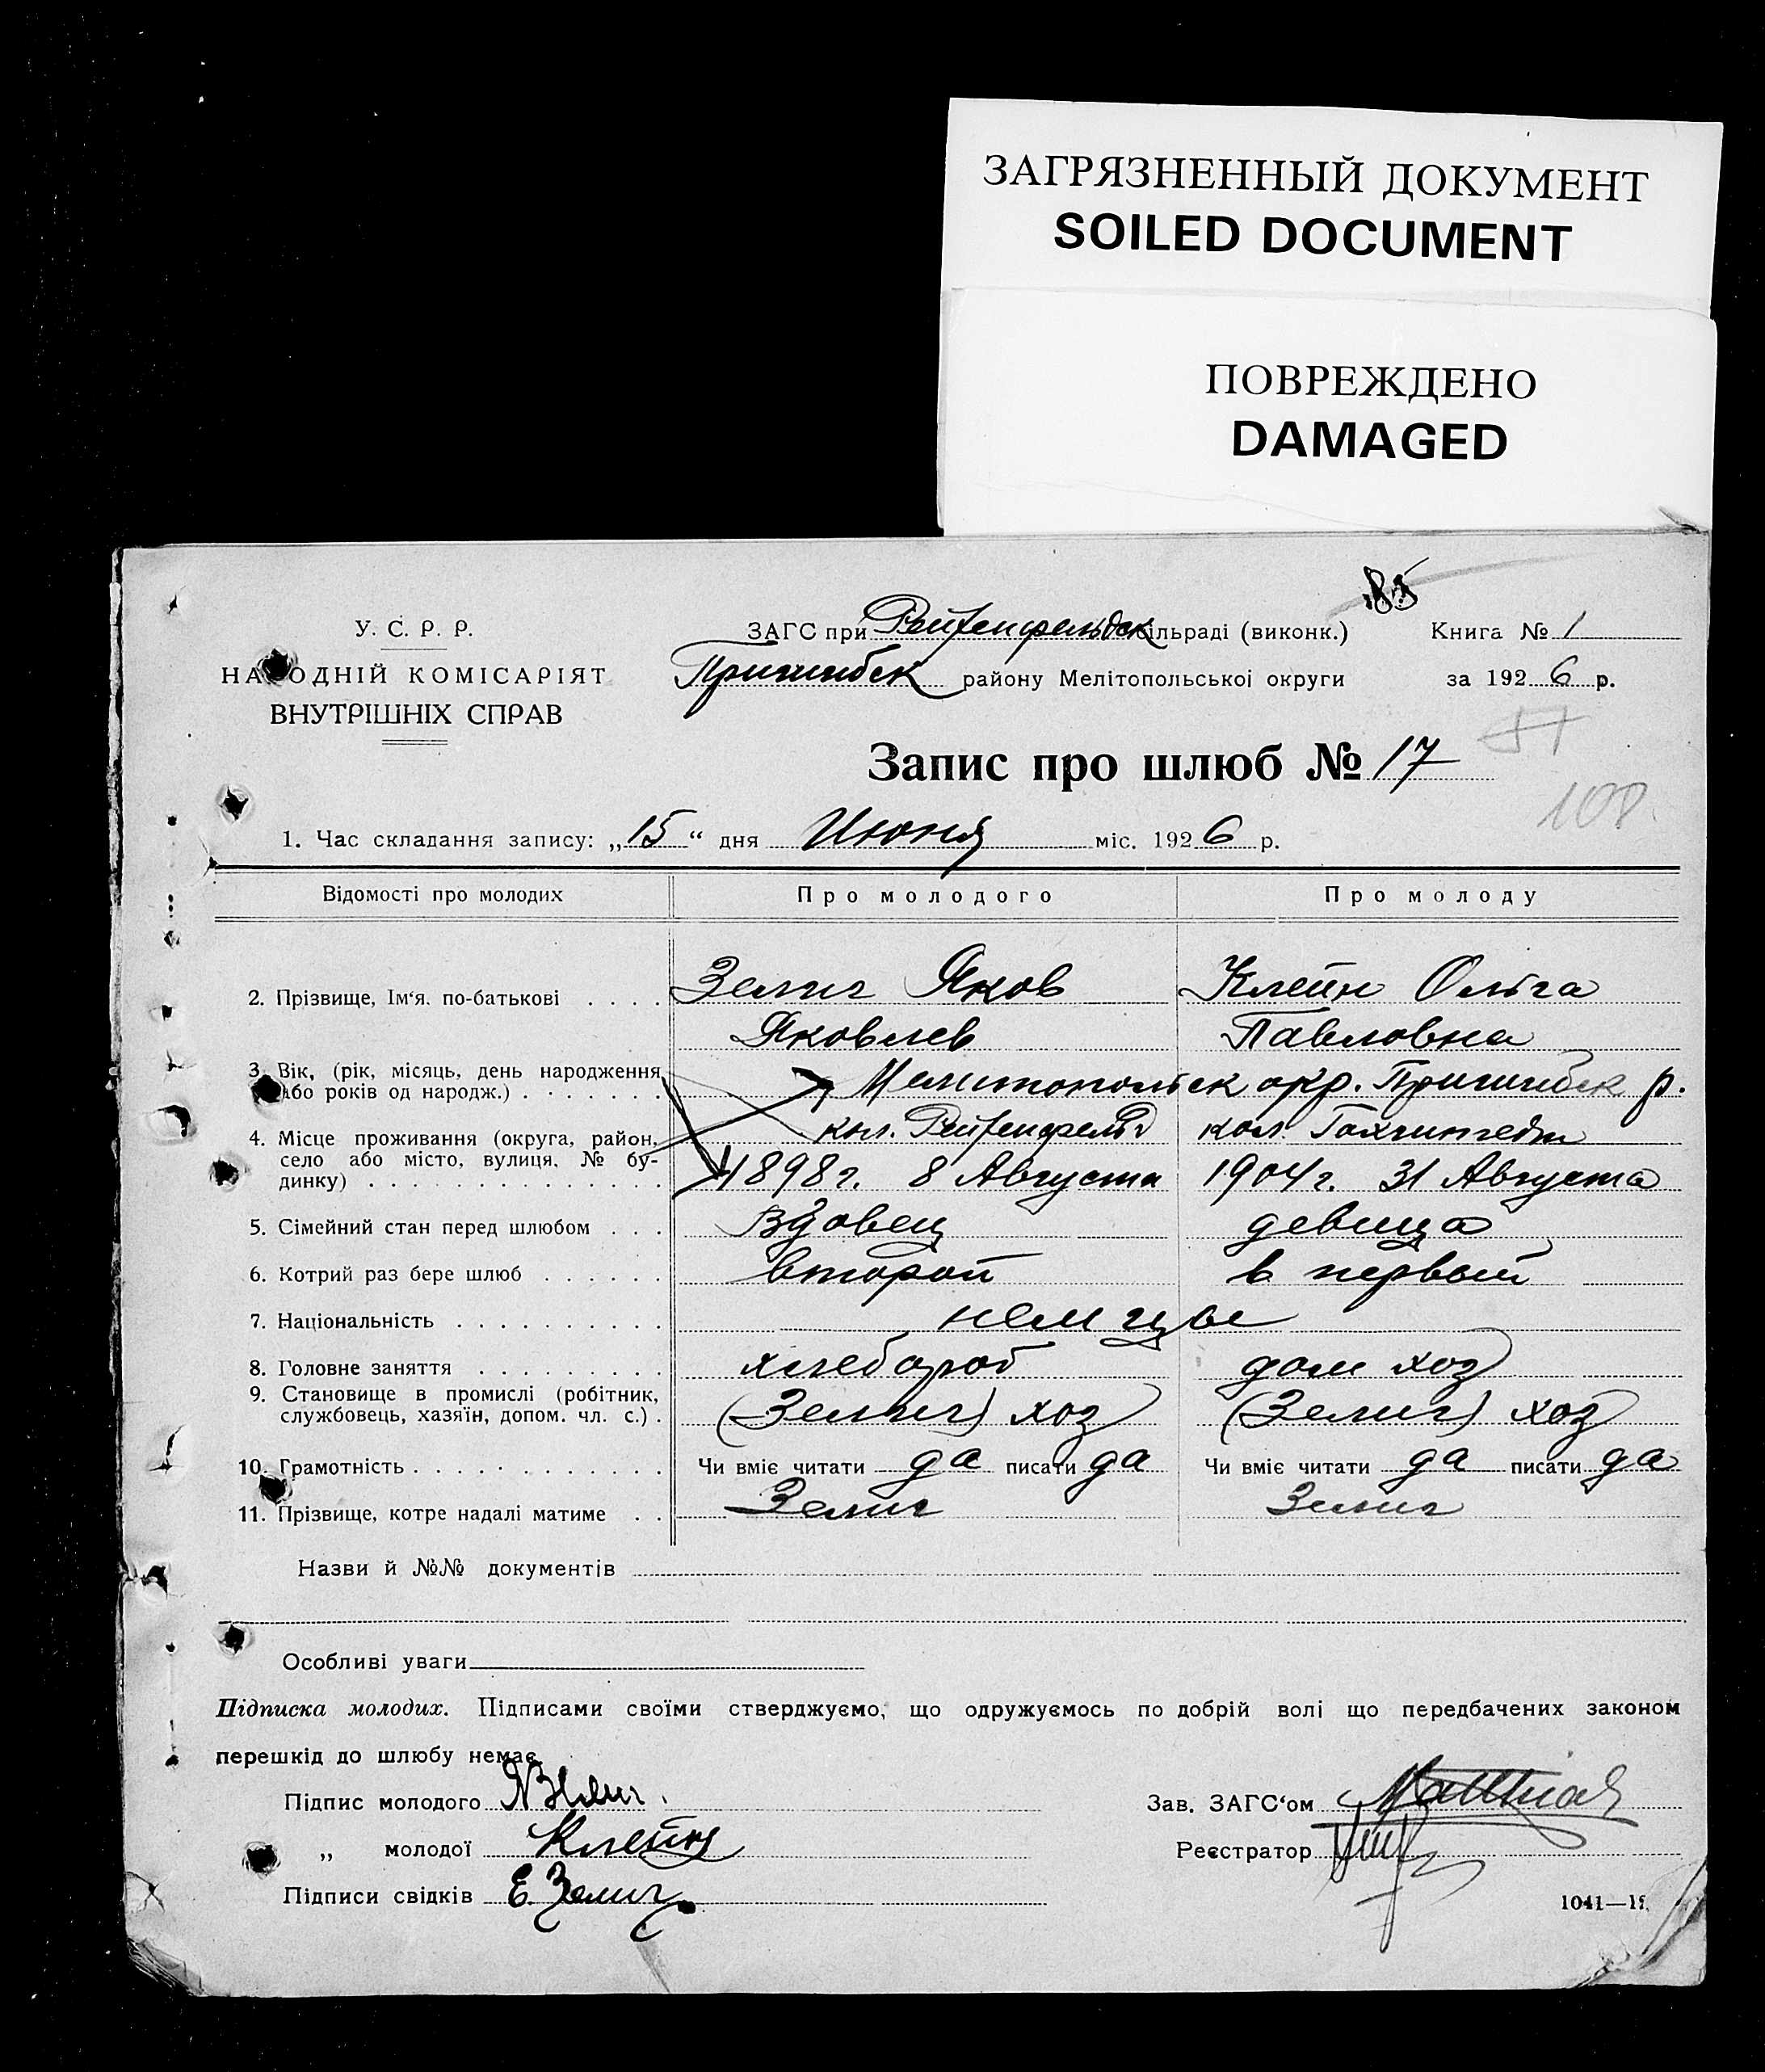 ЗАГРЯЗНЕННЫЙ ДОКУМЕНТ
SOILED DOCUMENT
ПОВРЕЖДЕНО
DAMAGED
185
У. С. Р. Р.
НАРОДНІЙ КОМІСАРІЯТ
ВНУТРІШНІХ СПРАВ
ЗАГС при Рейхенфельдск сільраді (виконк.) Книга № 1
Пришибск району Мелітопольської округи за 1926 р.
Запис про шлюб № 17
108
1. Час складання запису: „15“ дня Июня міс. 1926 р.
Відомості про молодих Про молодого Про молоду
2. Прізвище, Ім‘я. по-батькові . . . . Зелиг Яков Клейн Ольга
Яковлев Павловна
3. Вік, (рік, місяць, день народження або років од народж.) . . . . . . . Мелитопольск окр. Пришибск р.
4. Місце проживання (округа, район, село або місто, вулиця, № будинку) . . . . . . . . . . . . . . кол. Рейхенфельд кол.
1898 г. 8 Августа 1904 г. 31 Августа
5. Сімейний стан перед шлюбом . . . Вдовец девица
6. Котрий раз бере шлюб . . . . . . второй в первый
7. Національність . . . . . . . . . . немцы
8. Головне заняття . . . . . . . . . хлебороб дом хоз
9. Становище в промислі (робітник, службовець, хазяїн, допом. чл. с.) . (Зелиг) хоз (Зелиг) хоз
10. Грамотність . . . . . . . . . . . . Чи вміє читати да писати да Чи вміє читати да писати да
11. Прізвище, котре надалі матиме . . Зелиг Зелиг
Назви й №№ документів
Особливі уваги
Підписка молодих. Підписами своїми стверджуємо, що одружуємось по добрій волі що передбачених законом
перешкід до шлюбу немає.
Підпис молодого Я Зелиг. Зав. ЗАГС‘ом
„ молодої Клейн Реєстратор
Підписи свідків Е. Зелиг
1041—1